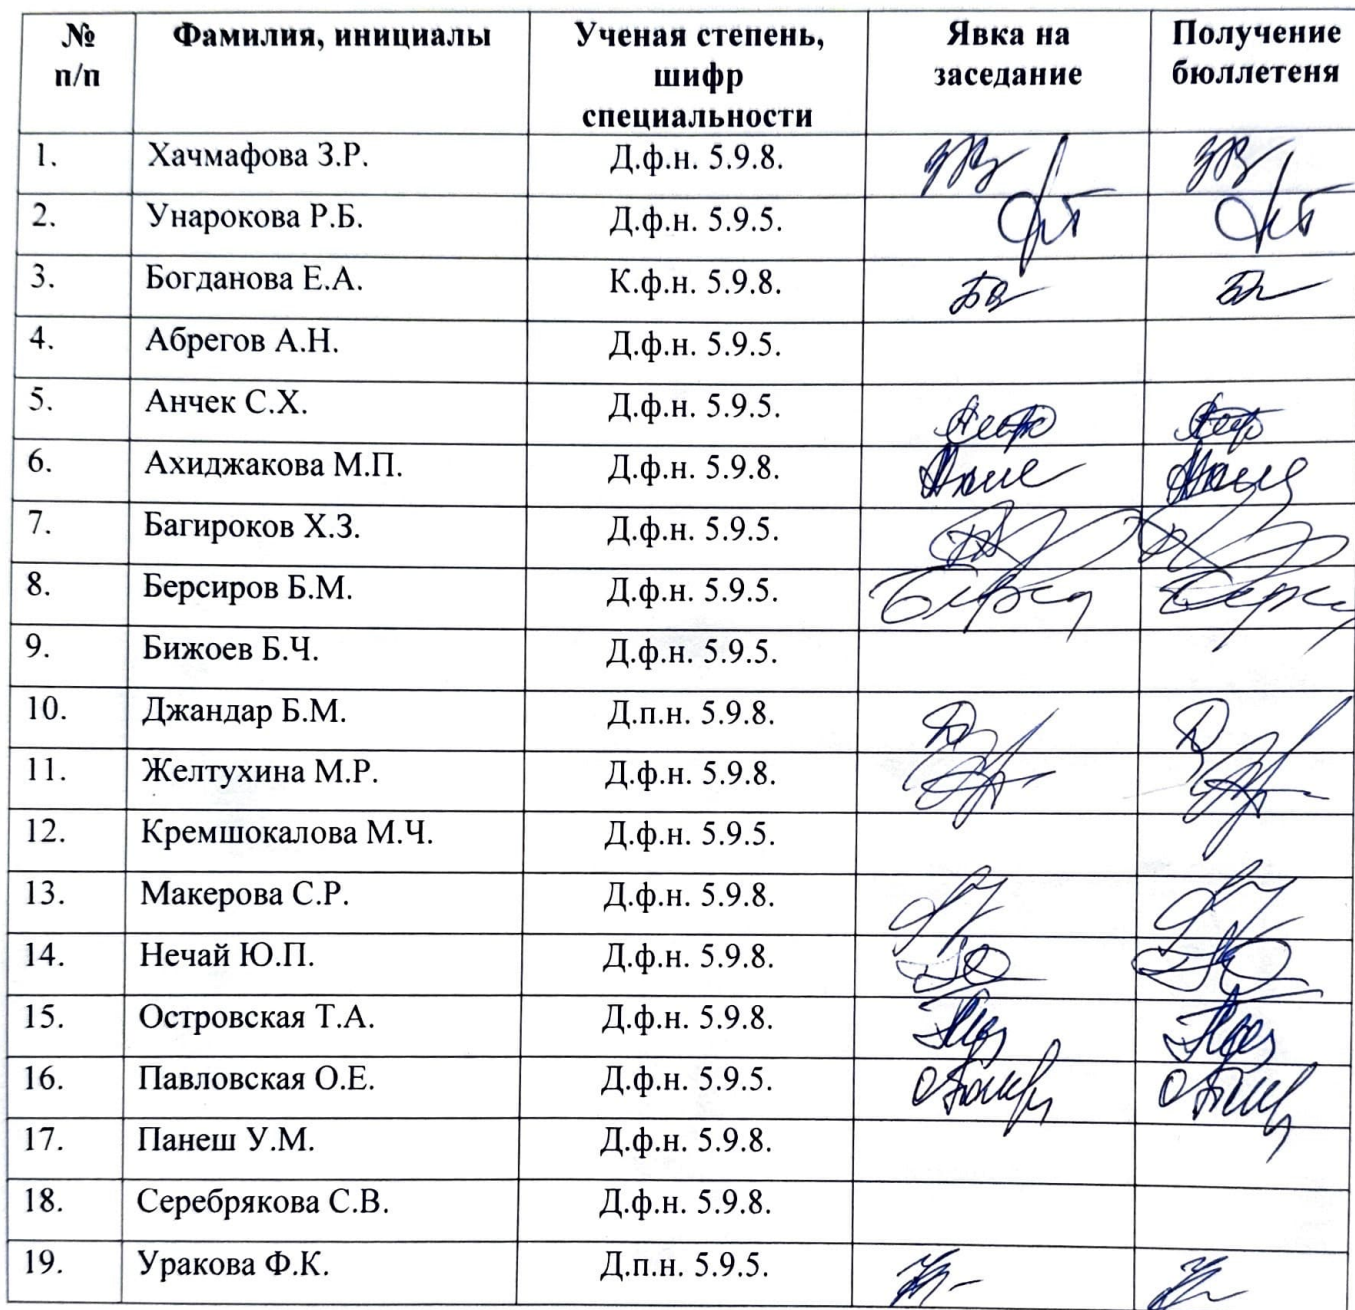 № п/п Фамилия, инициалы Ученая степень, шифр специальности Явка на заседание Получение бюллетеня
1. Хачмафова З.Р. Д.ф.н. 5.9.8.
2. Унарокова Р.Б. Д.ф.н. 5.9.5.
3. Богданова Е.А. К.ф.н. 5.9.8.
4. Абрегов А.Н. Д.ф.н. 5.9.5.
5. Анчек С.Х. Д.ф.н. 5.9.5.
6. Ахиджакова М.П. Д.ф.н. 5.9.8.
7. Багироков Х.З. Д.ф.н. 5.9.5.
8. Берсиров Б.М. Д.ф.н. 5.9.5.
9. Бижоев Б.Ч. Д.ф.н. 5.9.5.
10. Джандар Б.М. Д.п.н. 5.9.8.
11. Желтухина М.Р. Д.ф.н. 5.9.8.
12. Кремшокалова М.Ч. Д.ф.н. 5.9.5.
13. Макерова С.Р. Д.ф.н. 5.9.8.
14. Нечай Ю.П. Д.ф.н. 5.9.8.
15. Островская Т.А. Д.ф.н. 5.9.8.
16. Павловская О.Е. Д.ф.н. 5.9.5.
17. Панеш У.М. Д.ф.н. 5.9.8.
18. Серебрякова С.В. Д.ф.н. 5.9.8.
19. Уракова Ф.К. Д.п.н. 5.9.5.